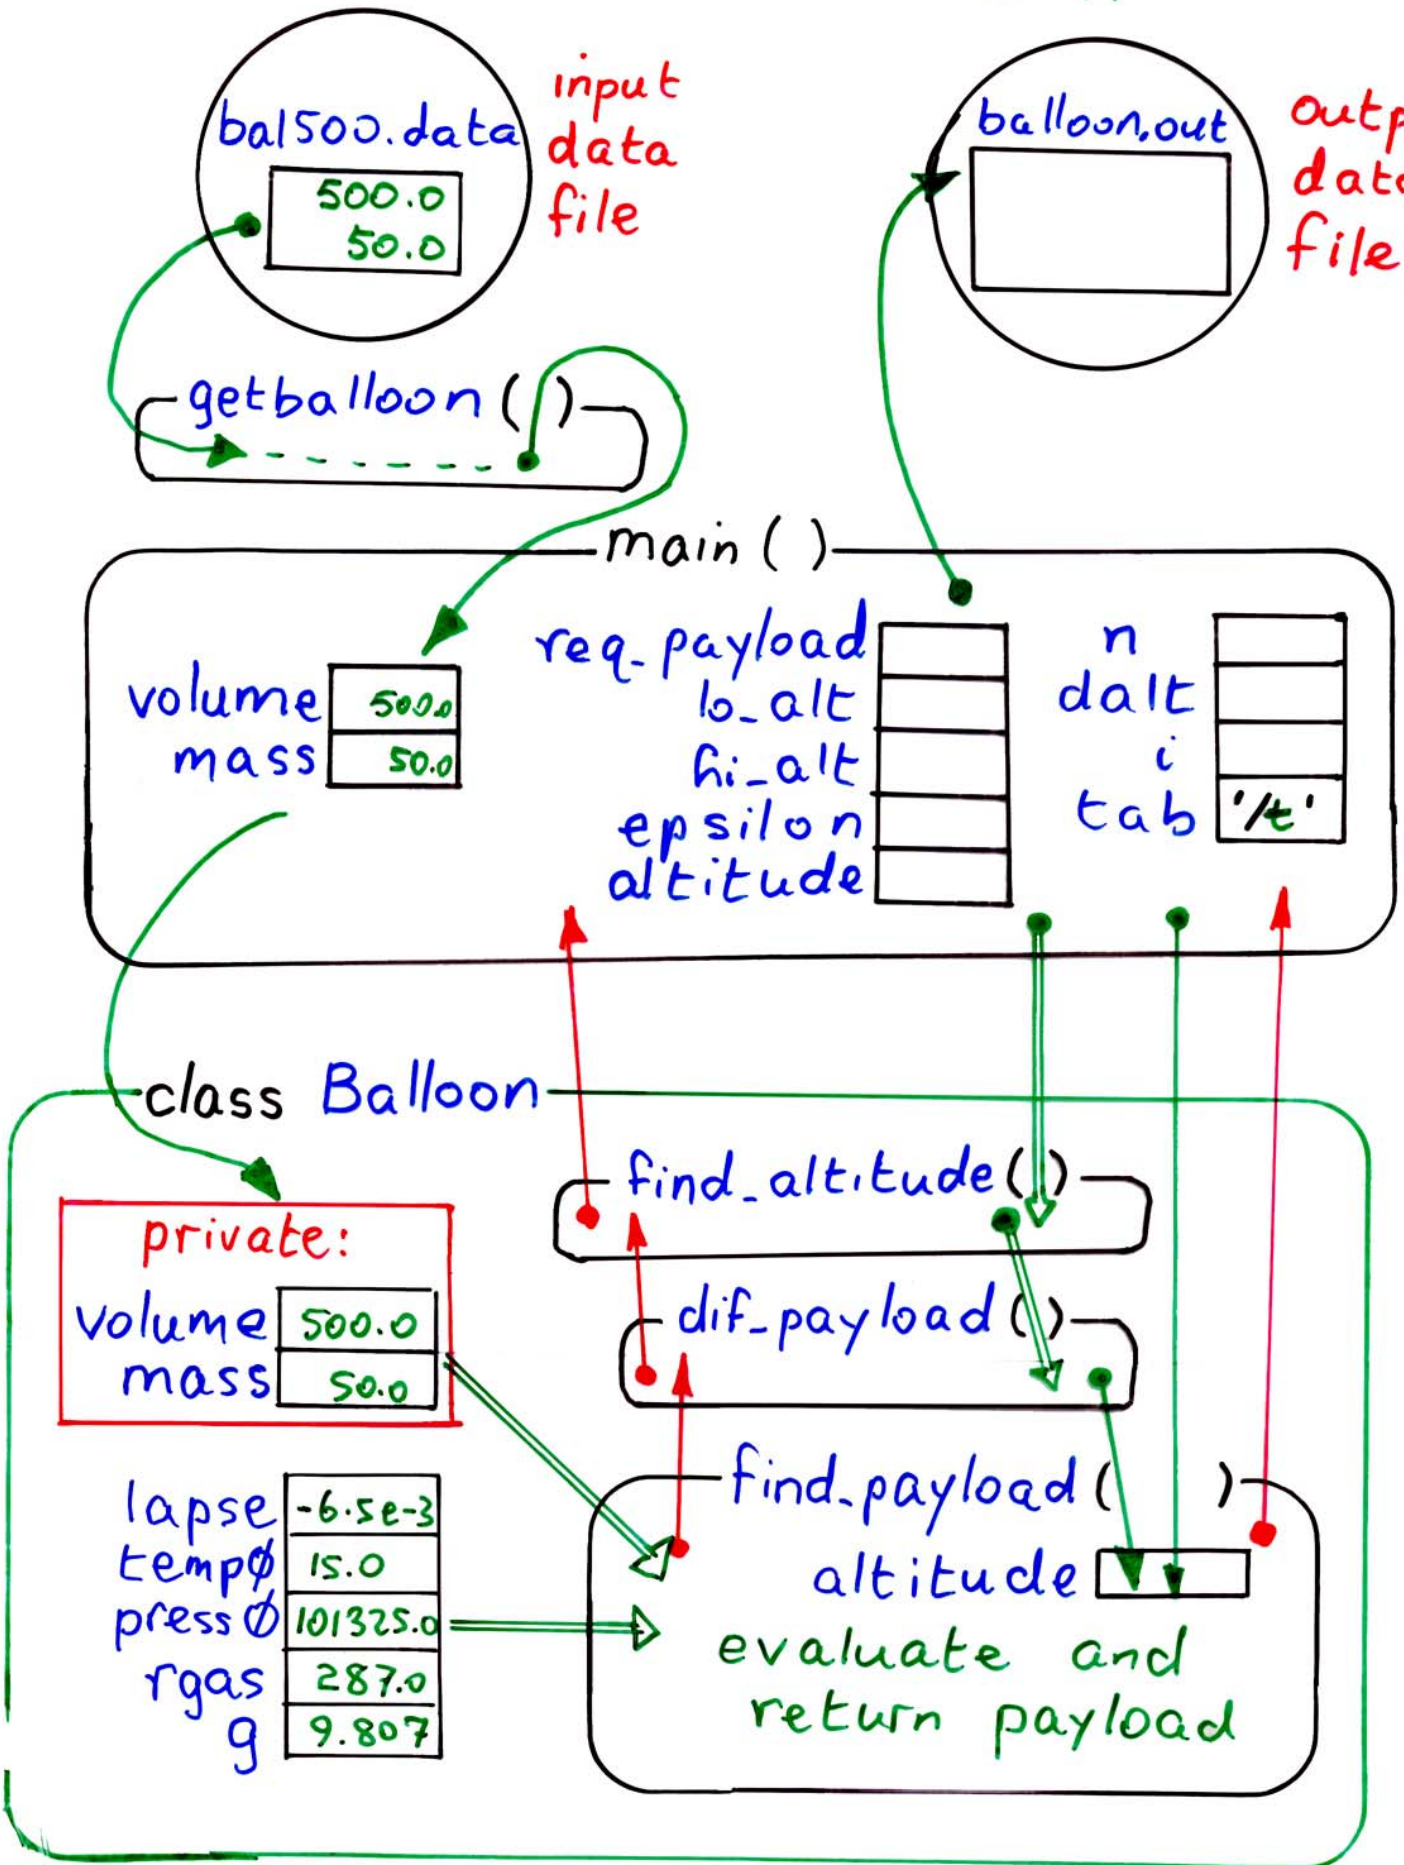 bal500.data
500.0
50.0
input
data
file
balloon.out
data
file
getballoon ( )
main ( )
volume 500.0
mass 50.0
req_payload
lo_alt
hi_alt
epsilon
altitude
n
dalt
i
tab '/t'
class Balloon
private:
volume 500.0
mass 50.0
lapse -6.5e-3
tempØ 15.0
pressØ 101325.0
rgas 287.0
g 9.807
find_altitude( )
dif_payload ( )
find_payload ( )
altitude
evaluate and
return payload